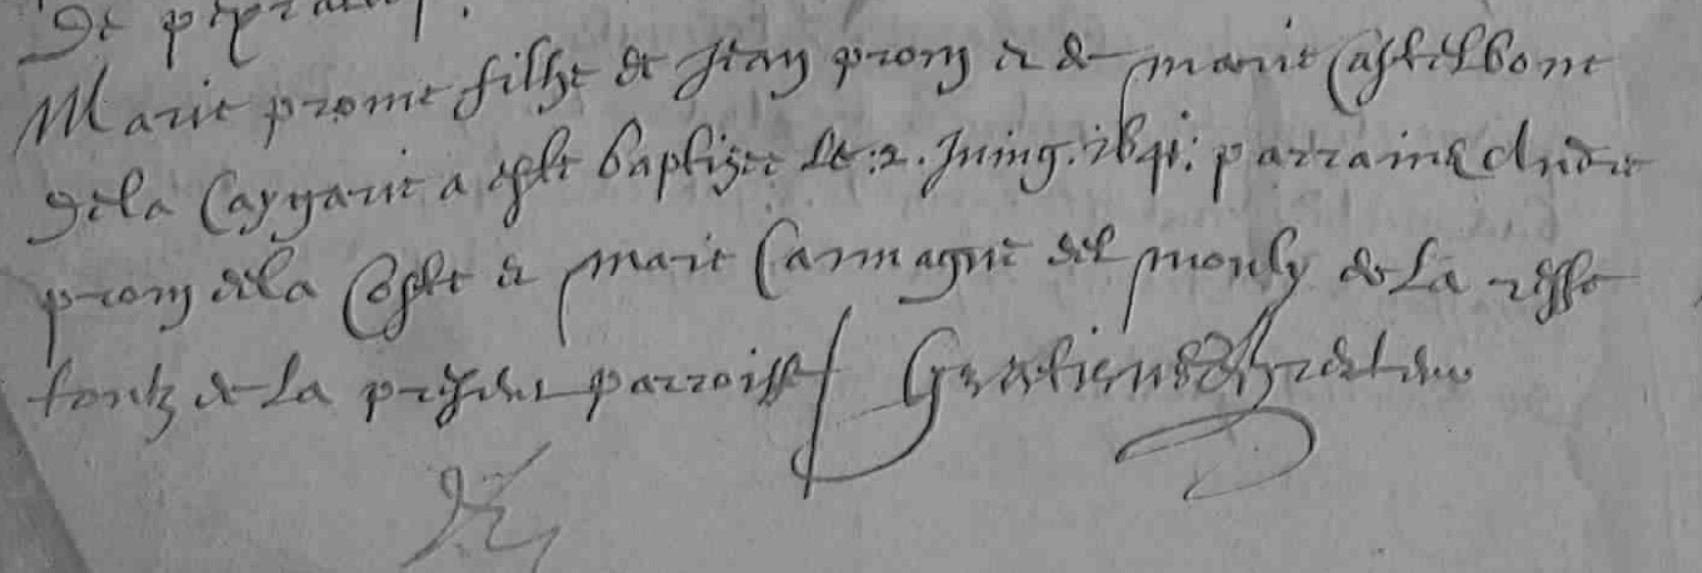 De
Marie prome filhe de Jean prom et de marie Castelbone
de la Caygarie a este baptizee le :2. Juing. 1641: parrain André
prom de la Coste et marie Carmagne del mouly de la resse
touts de la presente parroisse